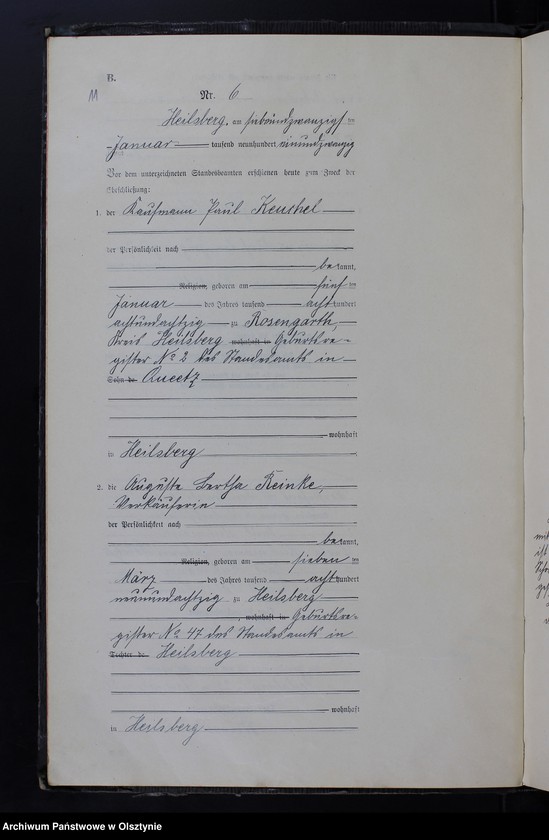 B.
11
Nr. 6
Heilsberg, am siebenundzwanzigsten
Januar tausend neunhundert einundzwanzig
Vor dem unterzeichneten Standesbeamten erschienen heute zum Zweck der
Eheschließung:
1. der Kaufmann Paul Keuchel
der Persönlichkeit nach
bekannt,
Religion, geboren am fünften
Januar des Jahres tausend achthundert
achtundachtzig zu Rosengarth,
Kreis Heilsberg wohnhaft in Geburtsre-
gister No 2 des Standesamts in
Sohn de Queetz
wohnhaft
in Heilsberg
2. die Auguste Bertha Reinke,
Verkäuferin
der Persönlichkeit nach
bekannt,
Religion, geboren am siebenten
März des Jahres tausend achthundert
neunundachtzig zu Heilsberg
, wohnhaft in Geburtsre-
gister No 47 des Standesamts in
Tochter de Heilsberg
wohnhaft
in Heilsberg
Archiwum Państwowe w Olsztynie